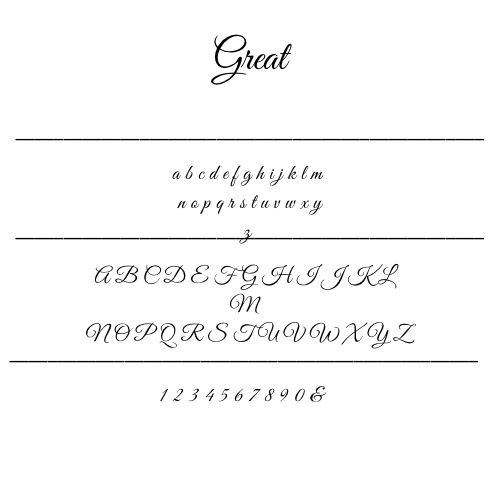 Great
a b c d e f g h i j k l m
n o p q r s t u v w x y
z
A B C D E F G H I J K L
M
N O P Q R S T U V W X Y Z
1 2 3 4 5 6 7 8 9 0 &